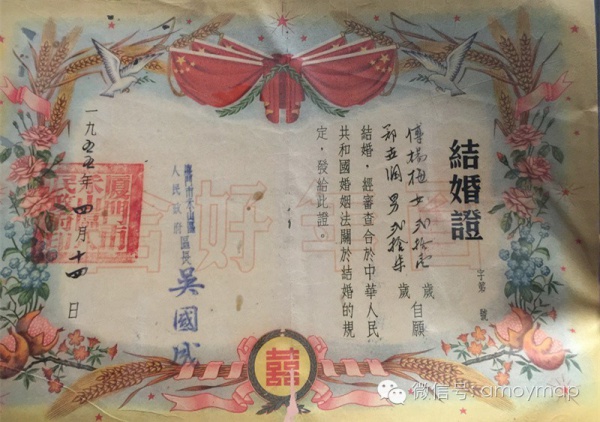 結婚證
字第 號
傅楊 女 貳拾 歲
鄭 男 貳拾柒 歲 自願
結婚,經審查合於中華人民
共和國婚姻法關於結婚的規
定,發給此證。
廈門市禾山區
人民政府區長 吳國成
一九五五年四月十四日
百年好合
囍
微信号: amoymap